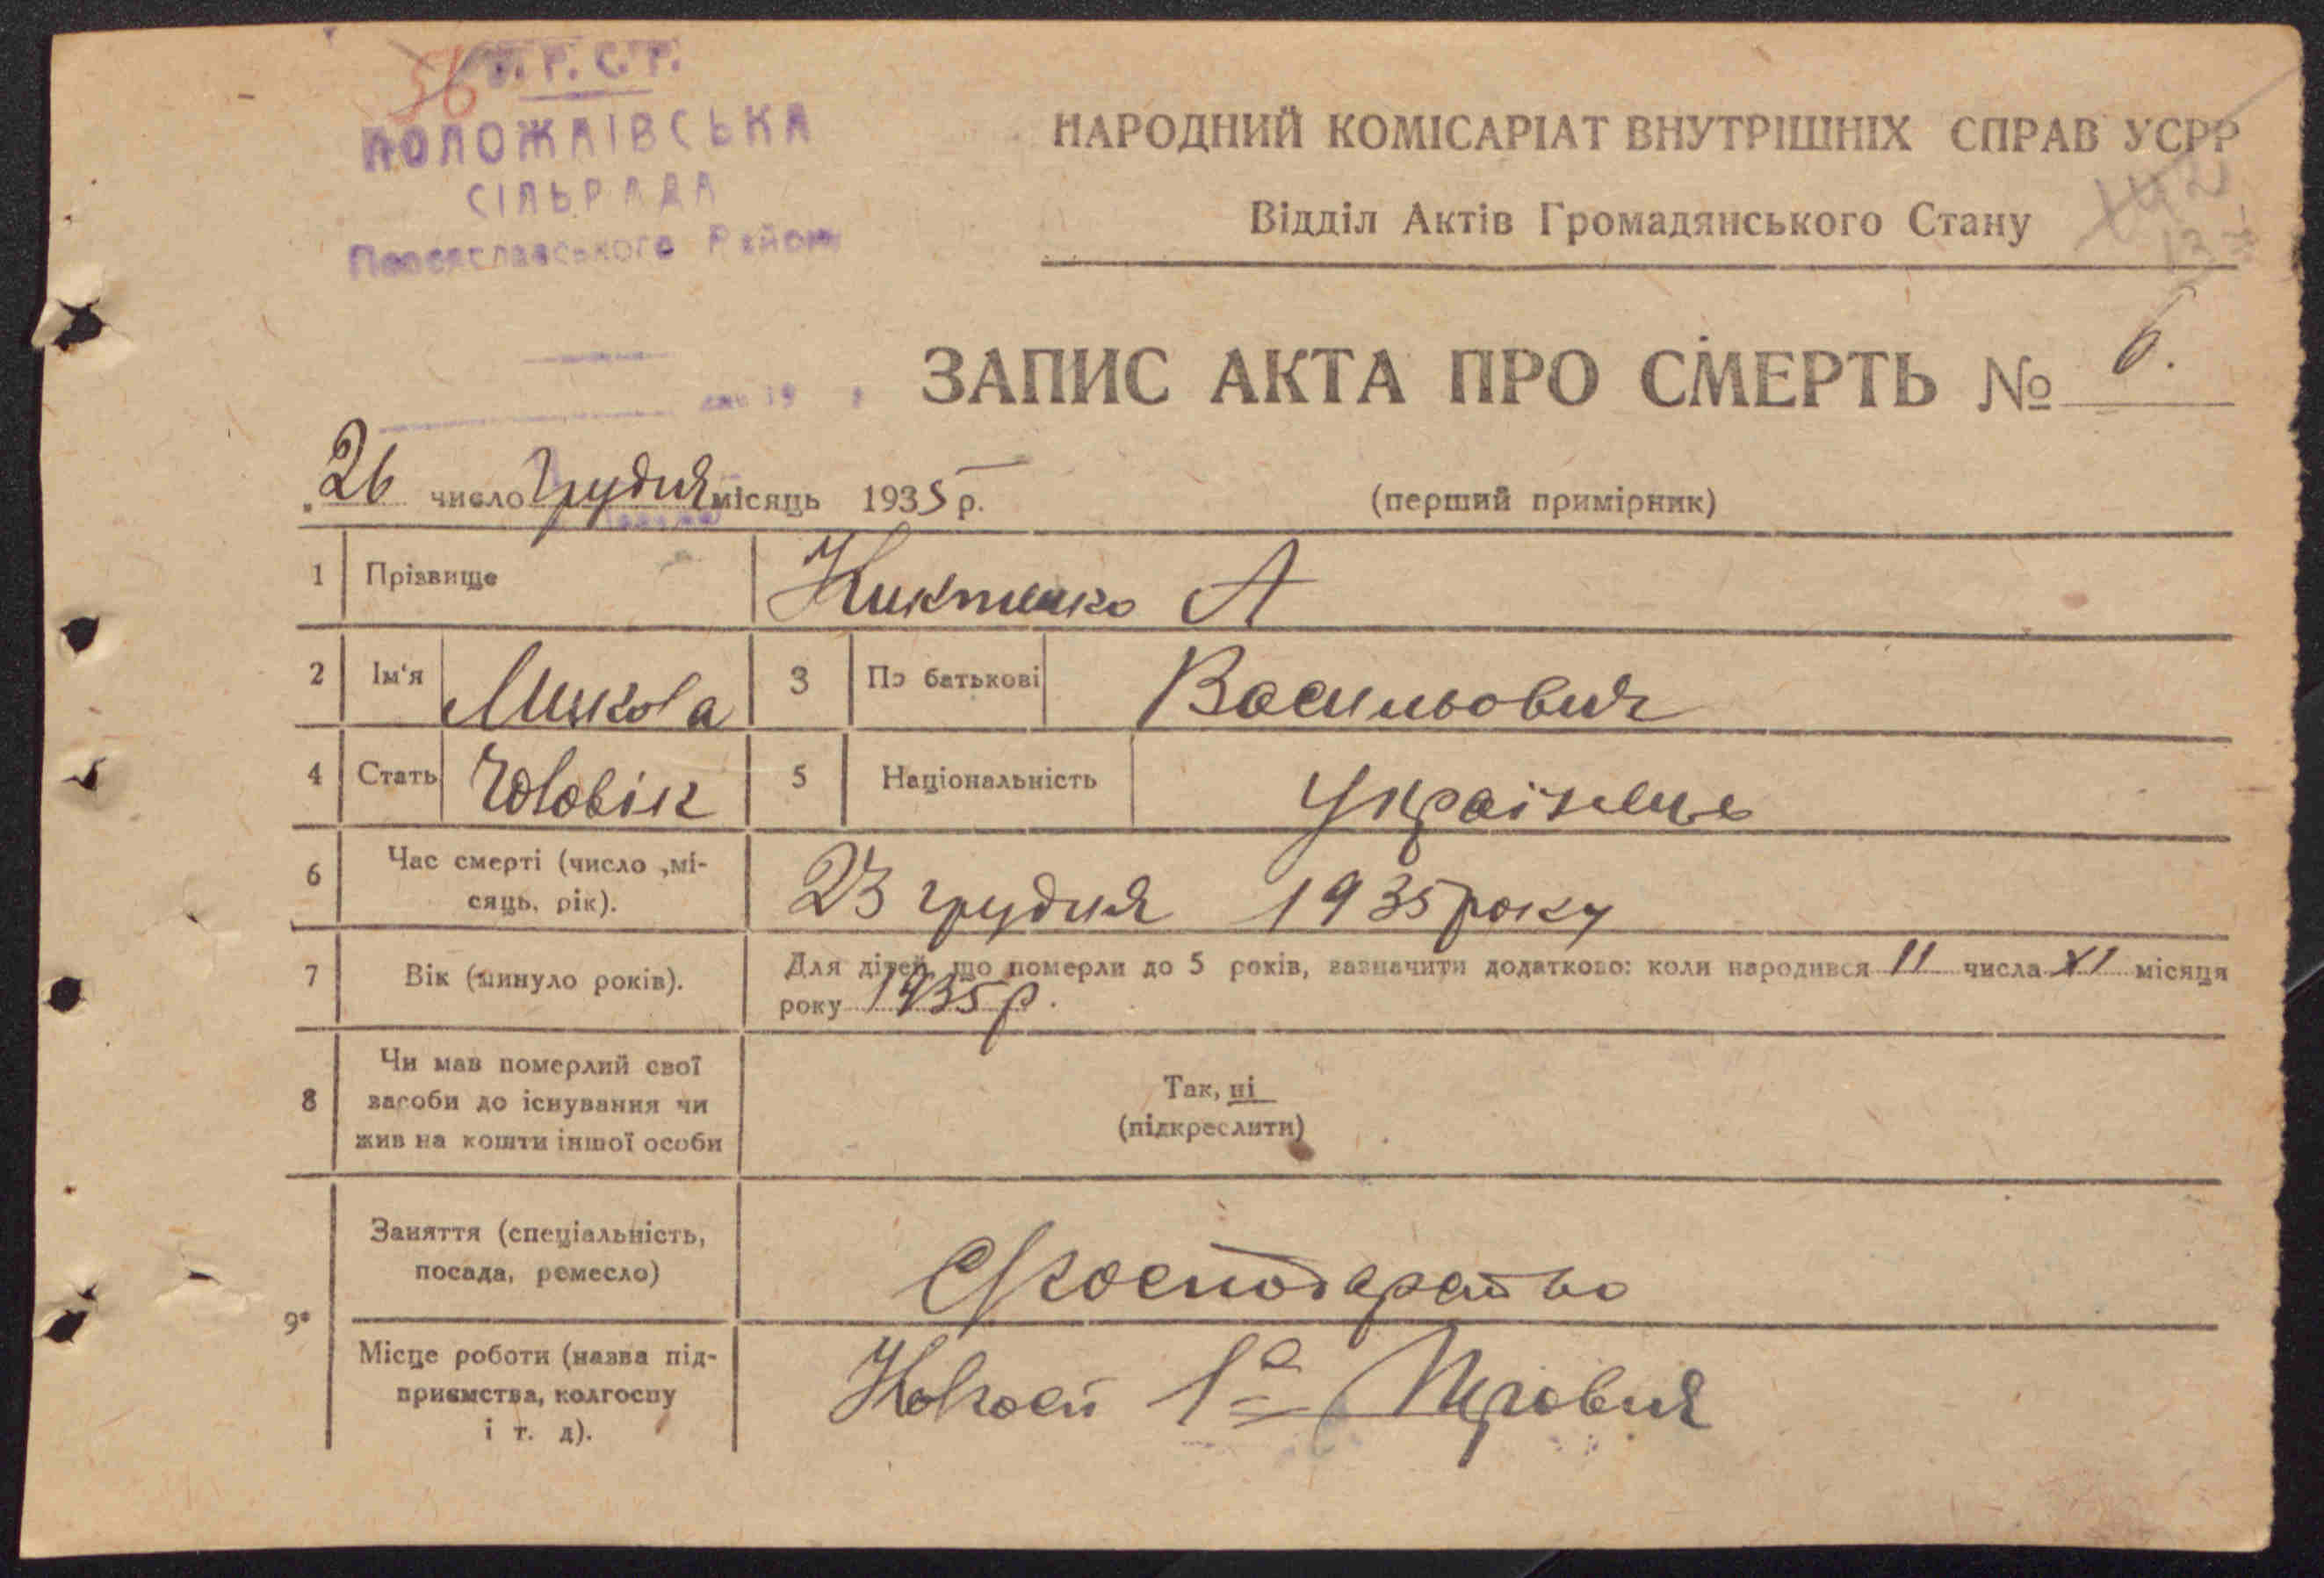 56
У.Р.С.Р.
ПОЛОЖАЇВСЬКА
СІЛЬРАДА
Переяславського Району
НАРОДНИЙ КОМІСАРІАТ ВНУТРІШНІХ СПРАВ УСРР
Відділ Актів Громадянського Стану
142
13
ЗАПИС АКТА ПРО СМЕРТЬ № 6.
26 число Грудня місяць 1935 р.
(перший примірник)
1 Прізвище Никтенко А
2 Ім'я Микола 3 По батькові Васильович
4 Стать Чоловік 5 Національність Українець
6 Час смерті (число ,мі-
сяць, рік). 23 грудня 1935 року
7 Вік (минуло років). Для дітей, що померли до 5 років, зазначити додатково: коли народився 11 числа XI місяця
року 1935 р.
8 Чи мав померлий свої
засоби до існування чи
жив на кошти іншої особи
Так, ні
(підкреслити)
9* Заняття (спеціальність,
посада, ремесло)
Місце роботи (назва під-
приємства, колгоспу
і т. д).
Колгосп 1е Травня